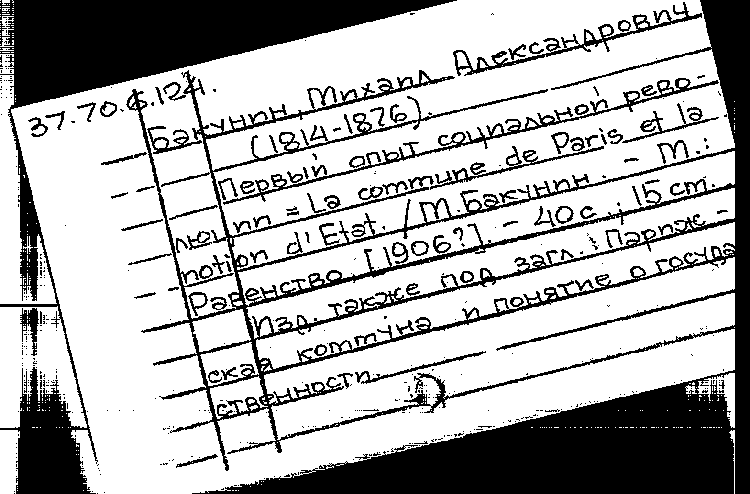 37.70.6.124.
Бакунин, Михаил Александрович
(1814-1876).
Первый опыт социальной рево-
люции = La commune de Paris et la
notion d'Etat. / М.Бакунин. - М.:
Равенство, [1906?]. - 40с.; 15 cm.
Изд. также под загл.: Париж-
ская коммуна и понятие о госуда
ственности.